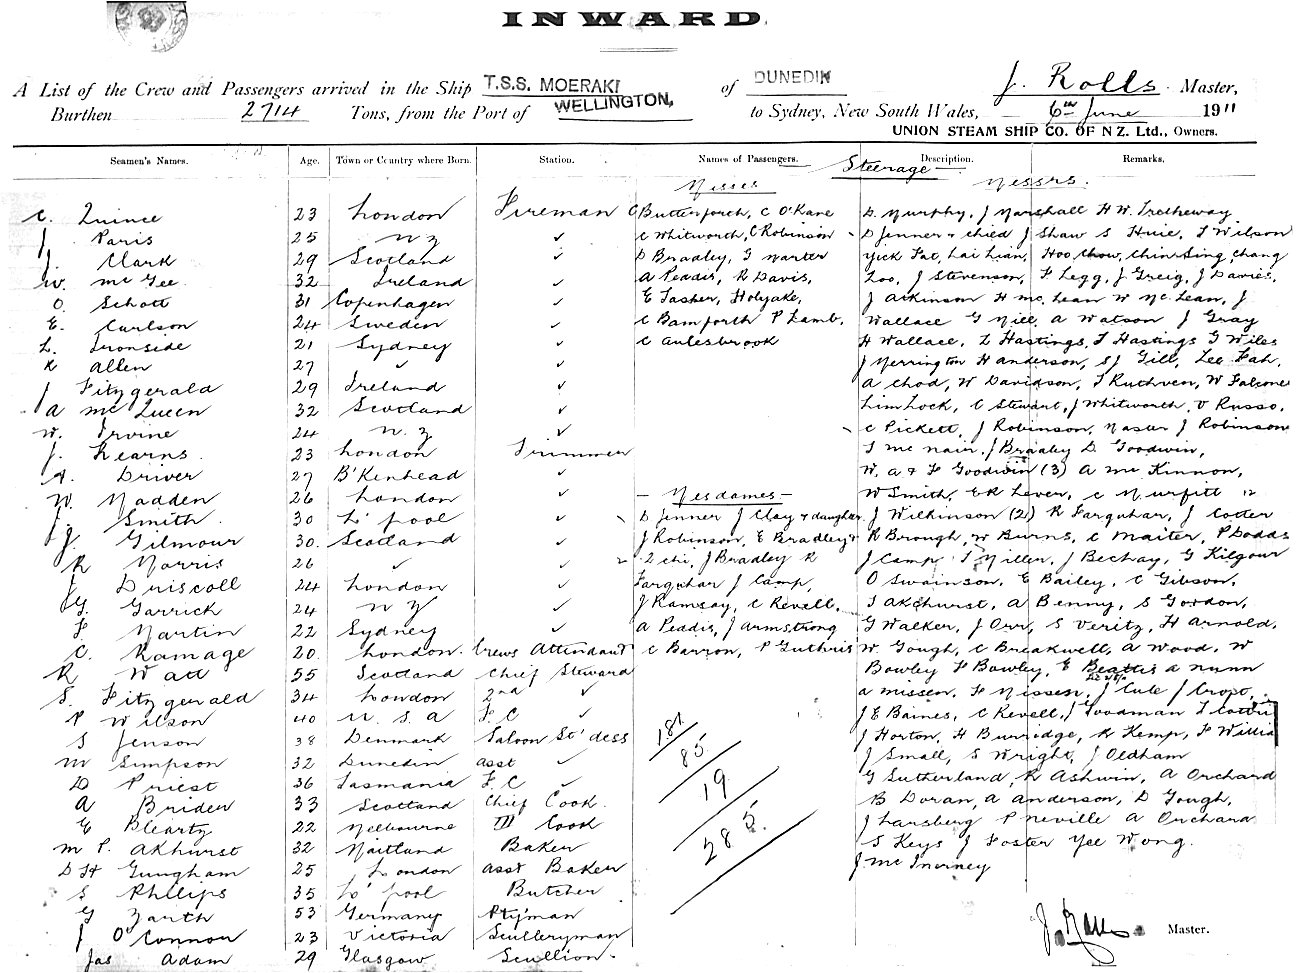 INWARD.
A List of the Crew and Passengers arrived in the Ship T.S.S. MOERAKI of DUNEDIN J. Rolls Master,
Burthen 2714 Tons, from the Port of WELLINGTON, to Sydney, New South Wales, 6th June 1911
UNION STEAM SHIP CO. OF N Z. Ltd., Owners.
Seamen's Names. Age. Town or Country where Born. Station. Names of Passengers. Steerage Description. Remarks.
C. Quince 23 London Fireman
J. Paris 25 N Z ✓
J. Clark 29 Scotland ✓
W. McGee 32 Ireland ✓
O. Schott 31 Copenhagen ✓
E. Carlson 24 Sweden ✓
L. Ironside 21 Sydney ✓
R Allen 27 ✓ ✓
J Fitzgerald 29 Ireland ✓
A McQueen 32 Scotland ✓
W. Irvine 24 N. Z ✓
J. Kearns 23 London Trimmer
A. Driver 27 B'Kenhead ✓
W. Madden 26 London ✓
J. Smith 30 L'pool ✓
J. Gilmour 30. Scotland ✓
R Morris 26 ✓ ✓
J Driscoll 24 London ✓
G. Garrick 24 N Z ✓
F Martin 22 Sydney ✓
C. Ramage 20 London. Crews Attendant
R Watt 55 Scotland Chief Steward
S. Fitzgerald 34 London 2nd ✓
P Wilson 40 U. S. A F. C ✓
S Jenson 38 Denmark Saloon St'dess
M Simpson 32 Dunedin Asst ✓
D Priest 36 Tasmania F. C ✓
A Briden 33 Scotland Chief Cook.
E Blearty 22 Melbourne III Cook
M P. Akhurst 32 Maitland Baker
D H Gungham 25 London Asst Baker
S Phllips 35 L'pool Butcher
G Zarth 53 Germany Ptyman
J O'Connor 23 Victoria Sculleryman
Jas Adam 29 Glasgow Scullion.
Misses
C Butterforth, C O'Kane
C Whitworth, C Robinson
D Bradley, G Warter
A Peadis, R Davis,
E Tasker, Holyake,
C Bamforth P Lamb.
C Aulesbrook
Mesdames
D Jenner J Clay & daughter
J Robinson, E Bradley &
2 chi, J Bradley R
Farquhar J Camp,
J Ramsay, C Revell,
A Peadis, J Armstrong
C Barron, P Guthrie
181
85
19
285.
Messrs.
D. Murphy, J Marshall H W. Tretheway
D Jenner & child J Shaw S Huie, T Wilson
Yick Fat, Lai Lian, Hoo Chow, Chin Sing, Chang
Loo, J Stevenson, F Legg, J Greig, J Davies,
J Atkinson H McLean W McLean, J
Wallace G Neil A Watson J Gray
H Wallace, L Hastings, T Hastings G Wiles
J Merrington H Anderson, S J Gill, Lee Fah,
A Chod, W Davidson, T Ruthven, W Falcone
Lim Lock, C Stewart, J Whitworth, V Russo,
C Pickett, J Robinson, Master J Robinson
T McNair, J Bradley D. Goodwin,
W. A & F Goodwin (3) A McKinnon,
W Smith, E R Lever, C Murfitt
J Wilkinson (2) R Farquhar, J Cotter
R Brough, W Burns, C Maiter, P Dodds
J Camp T Miller, J Bechay, G Kilgour
O Swainson, E Bailey, C Gibson,
T Akehurst, A Benny, S Gordon,
G Walker, J Orr, S Verity, H Arnold,
W. Gough, C Breakwell, A Wood, W
Bowley F Bowley, E Beattie A Nunn
A Missen, F Missen, J Cule J Crost,
J E Baines, C Revell, J Goodman T Cottrit
J Horton, H Burridge, R Kemp, F Willia
J Small, S Wright, J Oldham
G Sutherland, R Ashwin, A Orchard
B Doran, A Anderson, D Gough,
J Larsberg P Neville A Orchard
S Keys J Foster Yee Wong.
J. McInerney
J. Rolls Master.